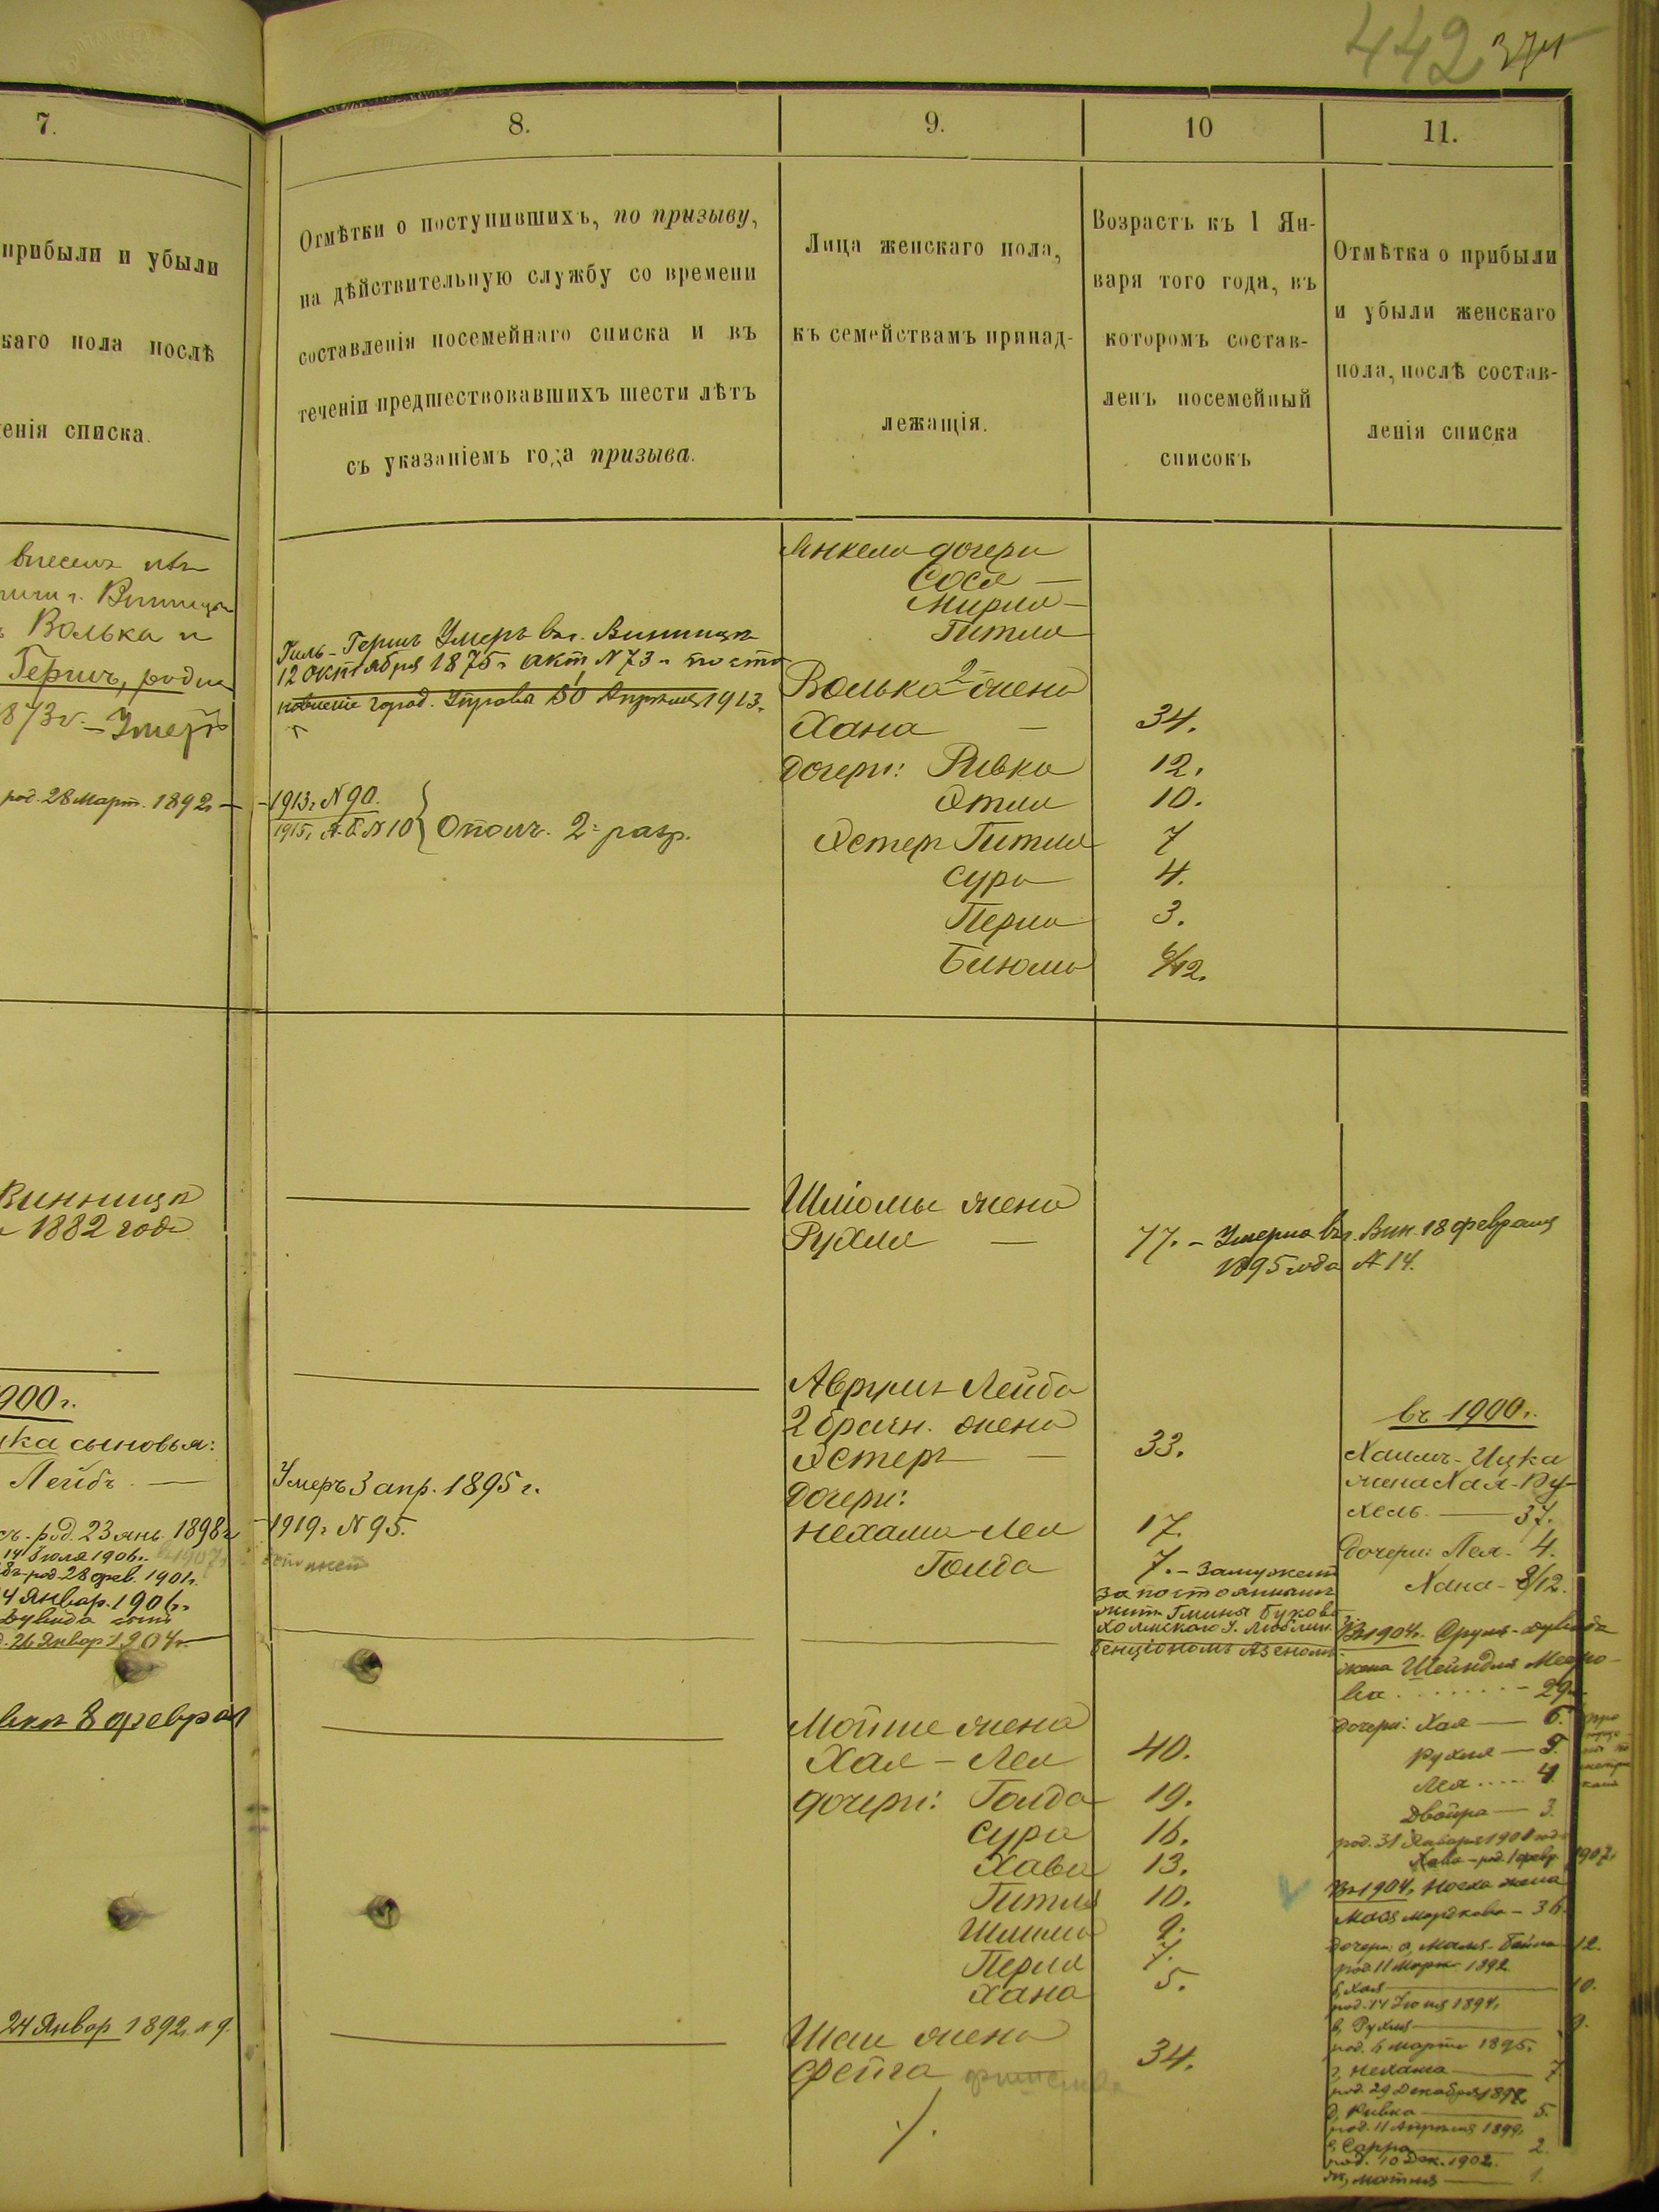 442
374
7.
8.
9.
10
11.
прибыли и убыли
каго пола послѣ
енія списка.
Отмѣтки о поступившихъ, по призыву,
на дѣйствительную службу со времени
составленія посемейнаго списка и въ
теченіи предшествовавшихъ шести лѣтъ
съ указаніемъ года призыва.
Лица женскаго пола,
къ семействамъ принад-
лежащія.
Возрастъ къ 1 Ян-
варя того года, въ
которомъ состав-
ленъ посемейный
списокъ
Отмѣтка о прибыли
и убыли женскаго
пола, послѣ состав-
ленія списка
г. Винницы
Волька и
Гершъ, родил
1873 г. – Умеръ
род. 28 Март. 1892 г. –
Гиль-Гершъ Умеръ въ г. Винницѣ
12 октября 1875 г. акт N 73 – поста
новленіе город. Управы 30 Апрѣля 1913 г.
1913 г. N 90.
1915 г. N 10 } Ополч. 2 разр.
Янкеля дочери
Сося —
Мирля —
Гитля
Волька 2 жена
Хана — 34.
дочери: Ривка 12.
Этля 10.
Эстер Гитля 7
Сура 4.
Перля 3.
Блюма 6/12.
Винницѣ
1882 года
Шліомы жена
Рухля — 77. – Умерла въ г. Вин. 18 февраля
1895 года N 14.
1900 г.
сыновья:
Лейбъ —
род. 23 янв. 1898 г.
14 Іюля 1906 г.
род. 28 фев. 1901 г.
4 Январ. 1906 г.
Дувида
26 Январ 1904 г.
Умеръ 3 апр. 1895 г.
1919 г. N 95.
Аврумъ Лейба
2 брачн. жена
Эстеръ — 33.
Дочери:
Нехама-Лея 17.
Голда 7. – Замужем
за постояннымъ
жит. Гмины Буково
Холмскаго у. Люблин.
Бенціономъ Азеномъ
въ 1900 г.
Хаимъ-Ицка
жена Хая-Ру-
хель — 37.
дочери: Лея – 4.
Хана – 8/12.
Въ 1904 г. Сруль-Дувида
жена Шейндля Мееро-
ва – 29.
дочери: Хая — 6.
Рухля — 5.
Лея 4.
Двойра — 3.
род. 31 Января 1901 год
Хава – род. 1 февр. 1907 г.
8 февраля
Мошие жена
Хая – Лея 40.
дочери: Голда 19.
Сура 16.
Хава 13.
Гитля 10.
Шишля 9.
Перля 7.
Хана 5.
Въ 1904 г. Носха жена
Мася Мордкова – 36.
дочери: а, Маля-Бейла 12.
род. 11 Март 1892
б, Хая — 10.
род. 14 Іюня 1894 г.
в, Рухля — 9.
род. 6 марта 1895 г.
г, Нехама — 7
род. 29 Декабря 1897
д, Ривка — 5.
род. 11 Апрѣля 1899 г.
е, Сарра — 2.
род. 10 Дек. 1902 г.
ж, Мотля — 1.
24 Январ 1892 г. N 9.
Шаи жена
Фейга 34.